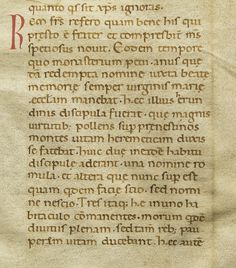 quanto qs sit xps ignoras.
Reo frs refero quam bene his qui
presto e frater et compresbiter ms
speciosus novit. Eodem tempore
quo monasterium petii. anus que
dam redempta nomine iuxta beate
memorie semper virginis marie
ecclam manebat. hec illius her un
dinis discipula fuerat. que magnis
virtutib; pollens sup prenestinos
montes vitam heremiticam duxis
se fatebat. huic due inerchem habitu
discipule aderant. una nomine ro
mula. et altera que nunc sup est
quam qdem facie scio. sed nomi
ne nescio. Tres itaq; he in uno ha
bitaculo comanentes. morum qdem
divitiis plenam. sed tam reb; pau
perem vitam ducebant. hec aute